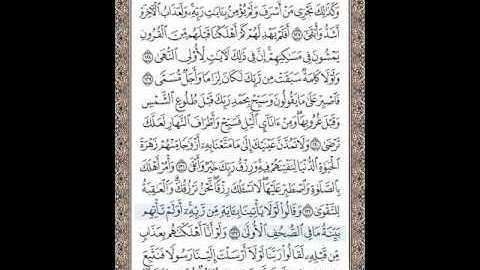 وَكَذَٰلِكَ نَجْزِي مَنْ أَسْرَفَ وَلَمْ يُؤْمِنۢ بِـَٔايَٰتِ رَبِّهِۦ وَلَعَذَابُ ٱلْءَاخِرَةِ
أَشَدُّ وَأَبْقَىٰٓ ١٢٧ أَفَلَمْ يَهْدِ لَهُمْ كَمْ أَهْلَكْنَا قَبْلَهُم مِّنَ ٱلْقُرُونِ
يَمْشُونَ فِي مَسَٰكِنِهِمْ إِنَّ فِي ذَٰلِكَ لَءَايَٰتٍ لِّأُو۟لِي ٱلنُّهَىٰ ١٢٨
وَلَوْلَا كَلِمَةٌ سَبَقَتْ مِن رَّبِّكَ لَكَانَ لِزَامًا وَأَجَلٌ مُّسَمًّى ١٢٩
فَٱصْبِرْ عَلَىٰ مَا يَقُولُونَ وَسَبِّحْ بِحَمْدِ رَبِّكَ قَبْلَ طُلُوعِ ٱلشَّمْسِ
وَقَبْلَ غُرُوبِهَا وَمِنْ ءَانَآئِ ٱلَّيْلِ فَسَبِّحْ وَأَطْرَافَ ٱلنَّهَارِ لَعَلَّكَ
تَرْضَىٰ ١٣٠ وَلَا تَمُدَّنَّ عَيْنَيْكَ إِلَىٰ مَا مَتَّعْنَا بِهِۦٓ أَزْوَٰجًا مِّنْهُمْ زَهْرَةَ
ٱلْحَيَوٰةِ ٱلدُّنْيَا لِنَفْتِنَهُمْ فِيهِ وَرِزْقُ رَبِّكَ خَيْرٌ وَأَبْقَىٰ ١٣١ وَأْمُرْ أَهْلَكَ
بِٱلصَّلَوٰةِ وَٱصْطَبِرْ عَلَيْهَا لَا نَسْـَٔلُكَ رِزْقًا نَّحْنُ نَرْزُقُكَ وَٱلْعَٰقِبَةُ
لِلتَّقْوَىٰ ١٣٢ وَقَالُوا۟ لَوْلَا يَأْتِينَا بِـَٔايَةٍ مِّن رَّبِّهِۦٓ أَوَلَمْ تَأْتِهِم
بَيِّنَةُ مَا فِي ٱلصُّحُفِ ٱلْأُولَىٰ ١٣٣ وَلَوْ أَنَّآ أَهْلَكْنَٰهُم بِعَذَابٍ
مِّن قَبْلِهِۦ لَقَالُوا۟ رَبَّنَا لَوْلَآ أَرْسَلْتَ إِلَيْنَا رَسُولًا فَنَتَّبِعَ